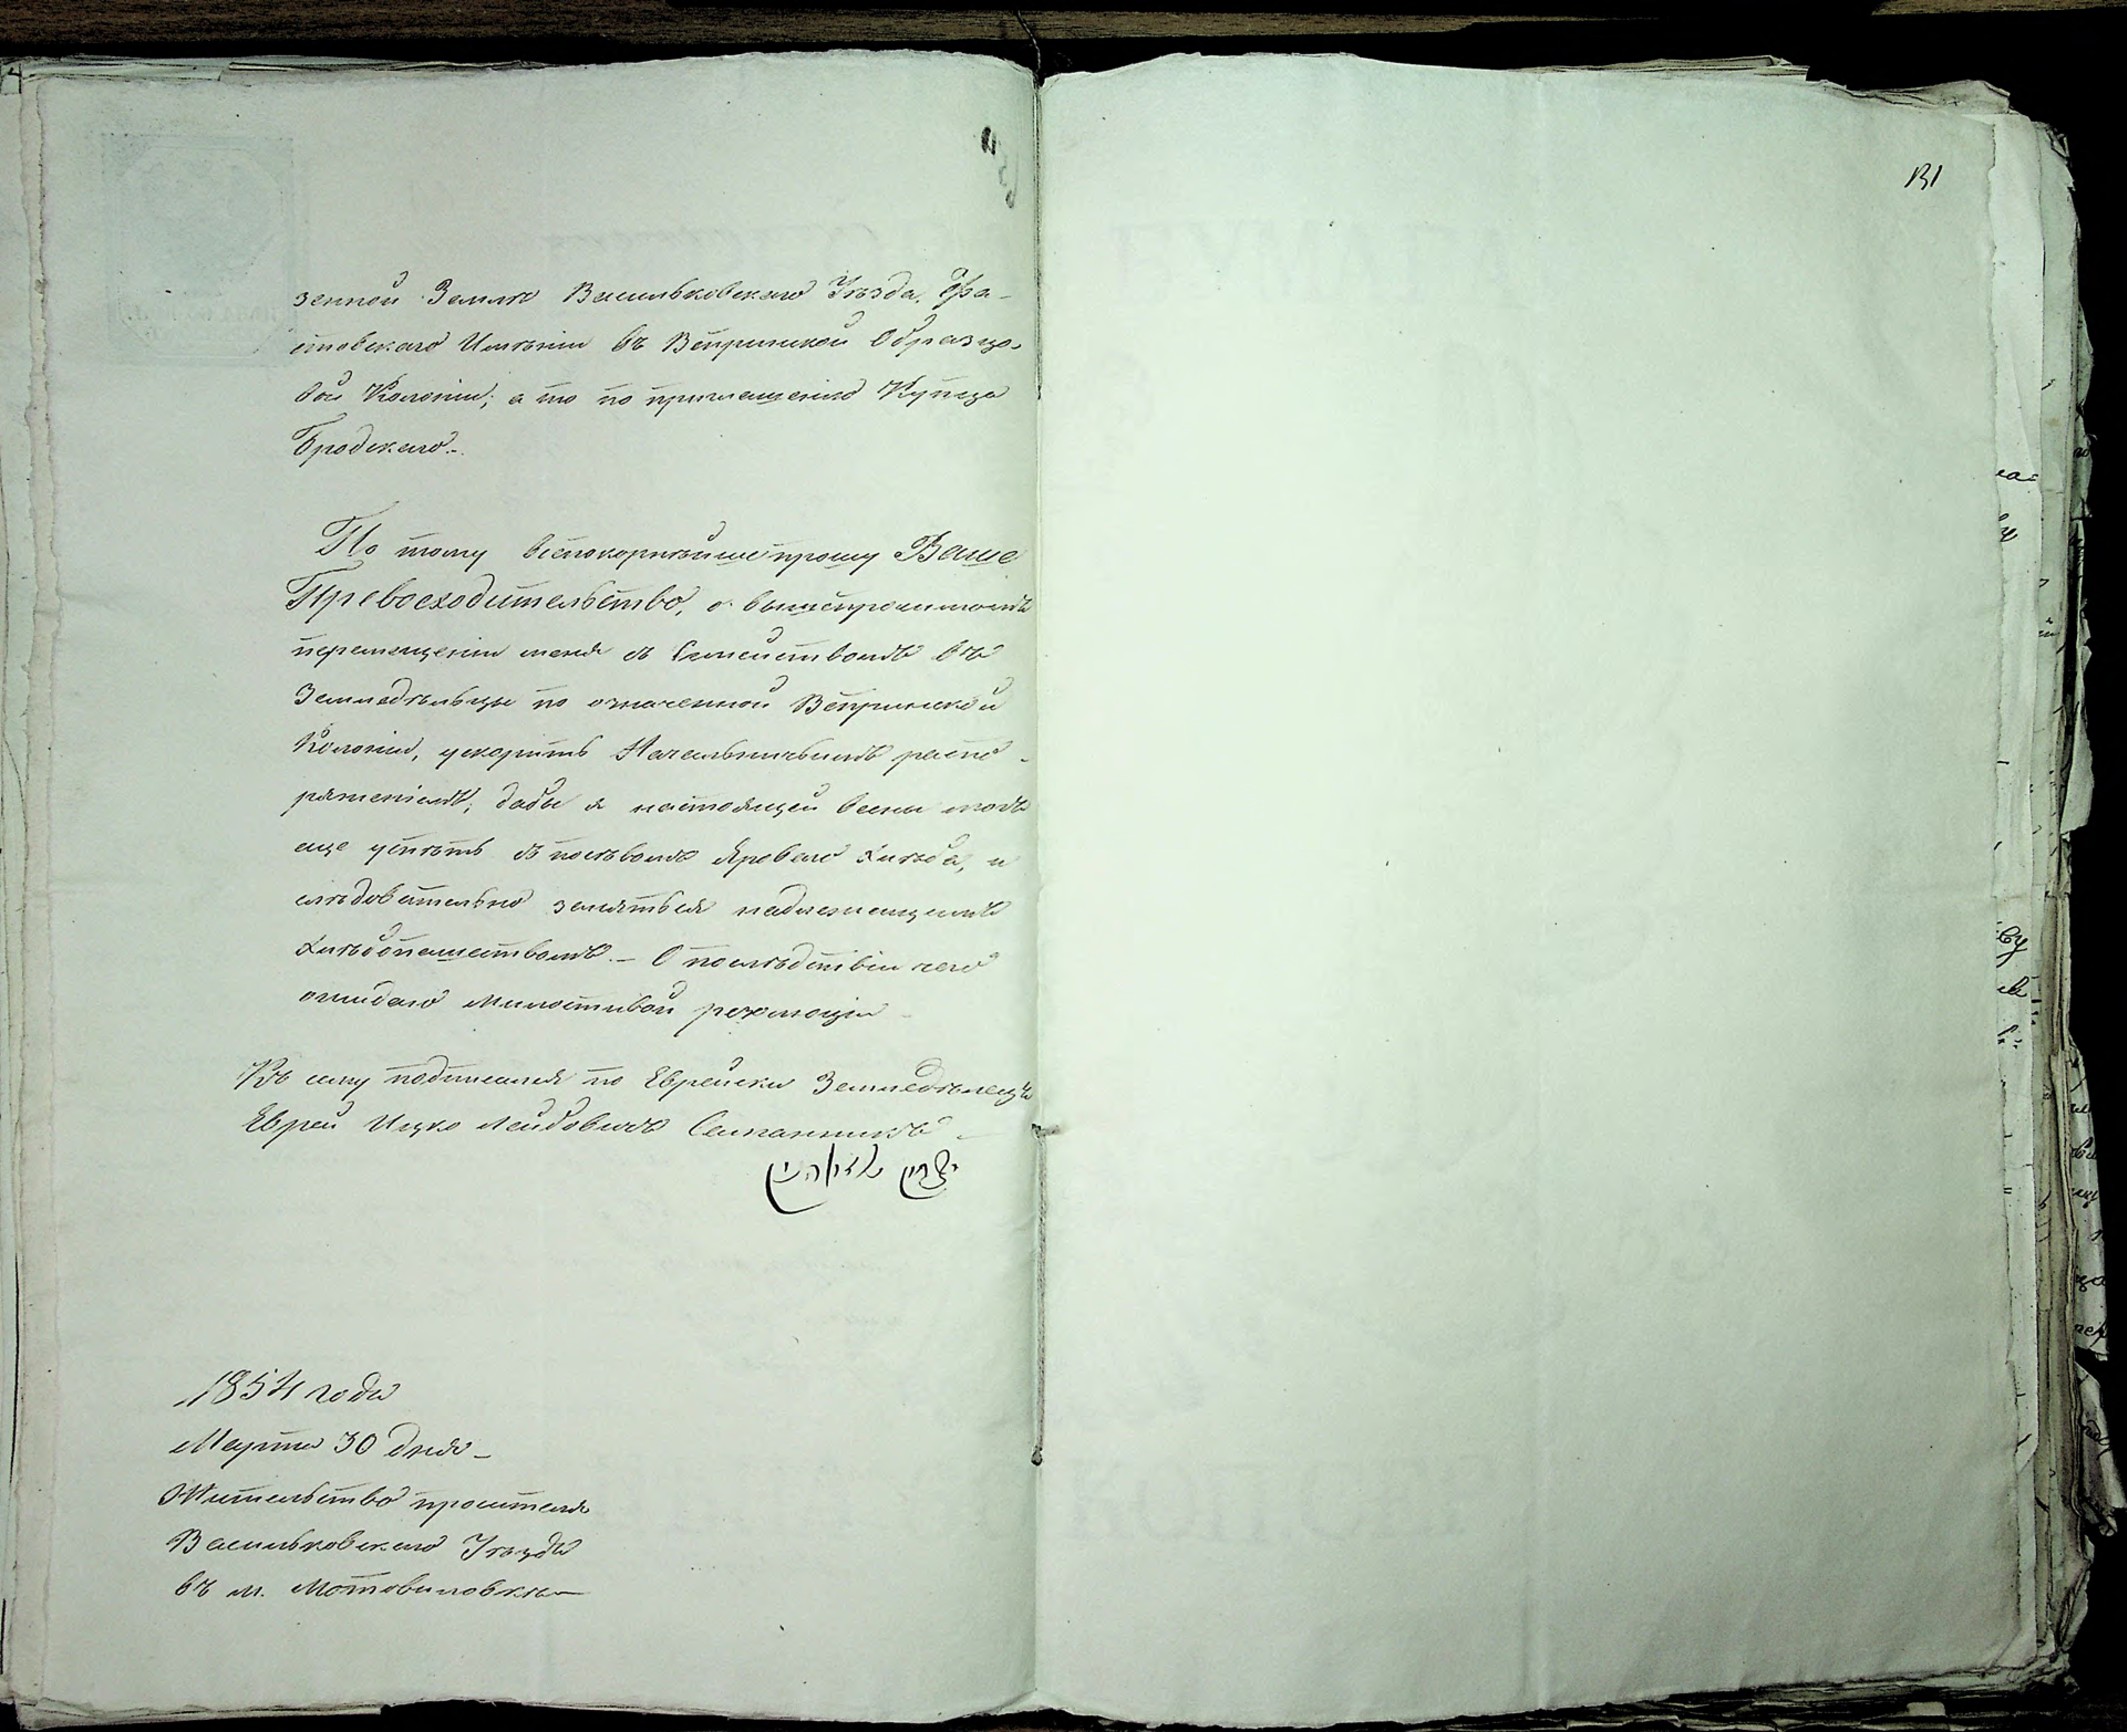 зенной Земли Васильковскаго Уѣзда, Фа-
стовскаго Имѣнія въ Вепринской Образцо-
вой Колоніи; а то по приглашенію Купца
Бродскаго.-
По тому всепокорнѣйше прошу Ваше
Превосходительство, о вышепрописанномъ
перемещеніи меня съ Семействомъ въ
Земледѣльцы по означенной Вепринской
Колоніи, ускорить Начальничьимъ распо-
ряженіемъ, дабы я настоящей весны могъ
еще успѣть съ посѣвомъ яроваго хлѣба, и
слѣдовательно заняться надлежащимъ
хлѣбопашествомъ. - О послѣдствіи чего
ожидаю милостивой резолюціи
Къ сему подписался по Еврейски Земледѣлецъ
Еврей Ицко Лейбовичъ
1854 года
Марта 30 дня -
Жительство просителя
Васильковскаго Уѣзда
въ м. Мотовиловкѣ
131